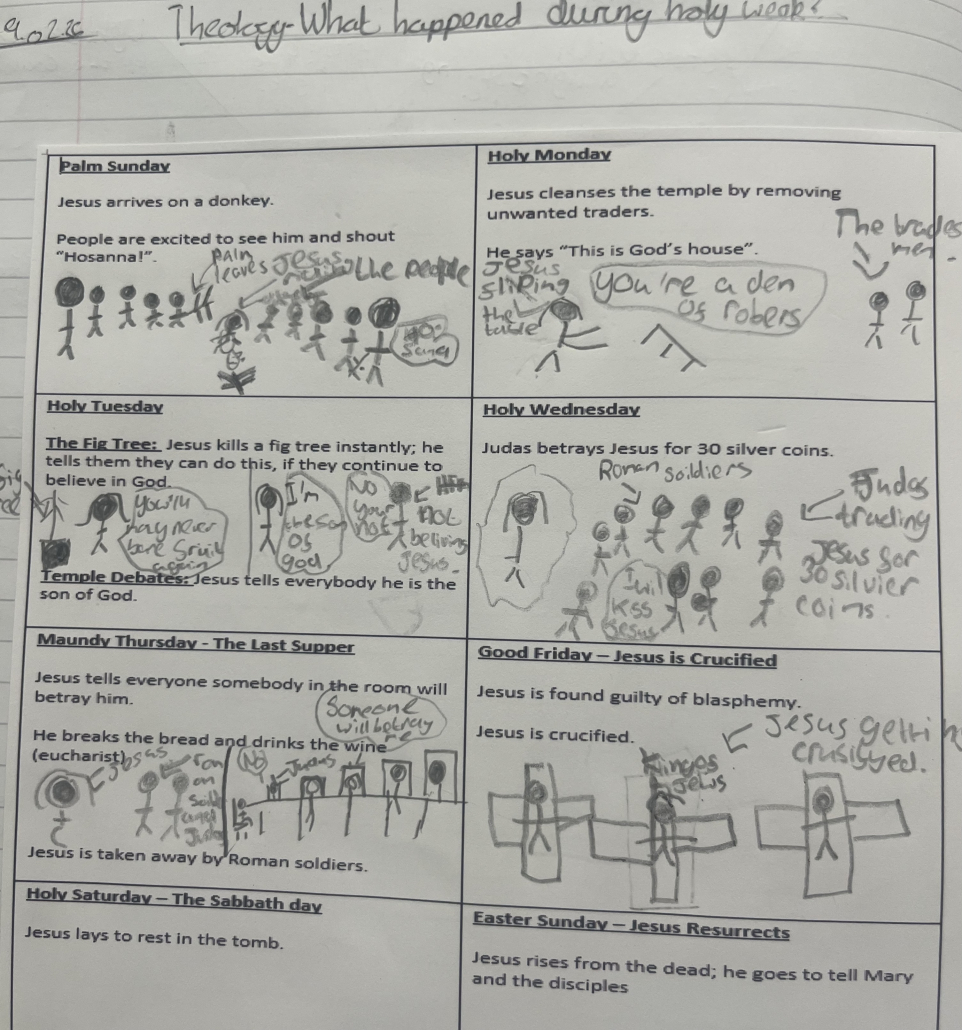 9.02.26 Theology-What happened during holy week?
Palm Sunday
Jesus arrives on a donkey.
People are excited to see him and shout
"Hosanna!".
palm
leaves
Jesus
the people
Ho-
sana
Holy Monday
Jesus cleanses the temple by removing
unwanted traders.
He says "This is God's house".
Jesus
fliping
the
table
you're a den
of robers
The trades
men.
Holy Tuesday
The Fig Tree: Jesus kills a fig tree instantly; he
tells them they can do this, if they continue to
believe in God.
you'll
may never
bare fruit
again
I'm
the son
of
god
No
your
not
not
beliving
Jesus.
Temple Debates: Jesus tells everybody he is the
son of God.
Holy Wednesday
Judas betrays Jesus for 30 silver coins.
Roman soildiers
I wil
kss
Jesus
Judas
trading
Jesus for
30 silvier
coins.
Maundy Thursday - The Last Supper
Jesus tells everyone somebody in the room will
betray him.
Someone
will betray
me
He breaks the bread and drinks the wine
(eucharist)
No
Judas
Jesus is taken away by Roman soldiers.
Good Friday – Jesus is Crucified
Jesus is found guilty of blasphemy.
Jesus is crucified.
Jesus getting
crusifyed.
Kinges
Jews
Holy Saturday – The Sabbath day
Jesus lays to rest in the tomb.
Easter Sunday – Jesus Resurrects
Jesus rises from the dead; he goes to tell Mary
and the disciples